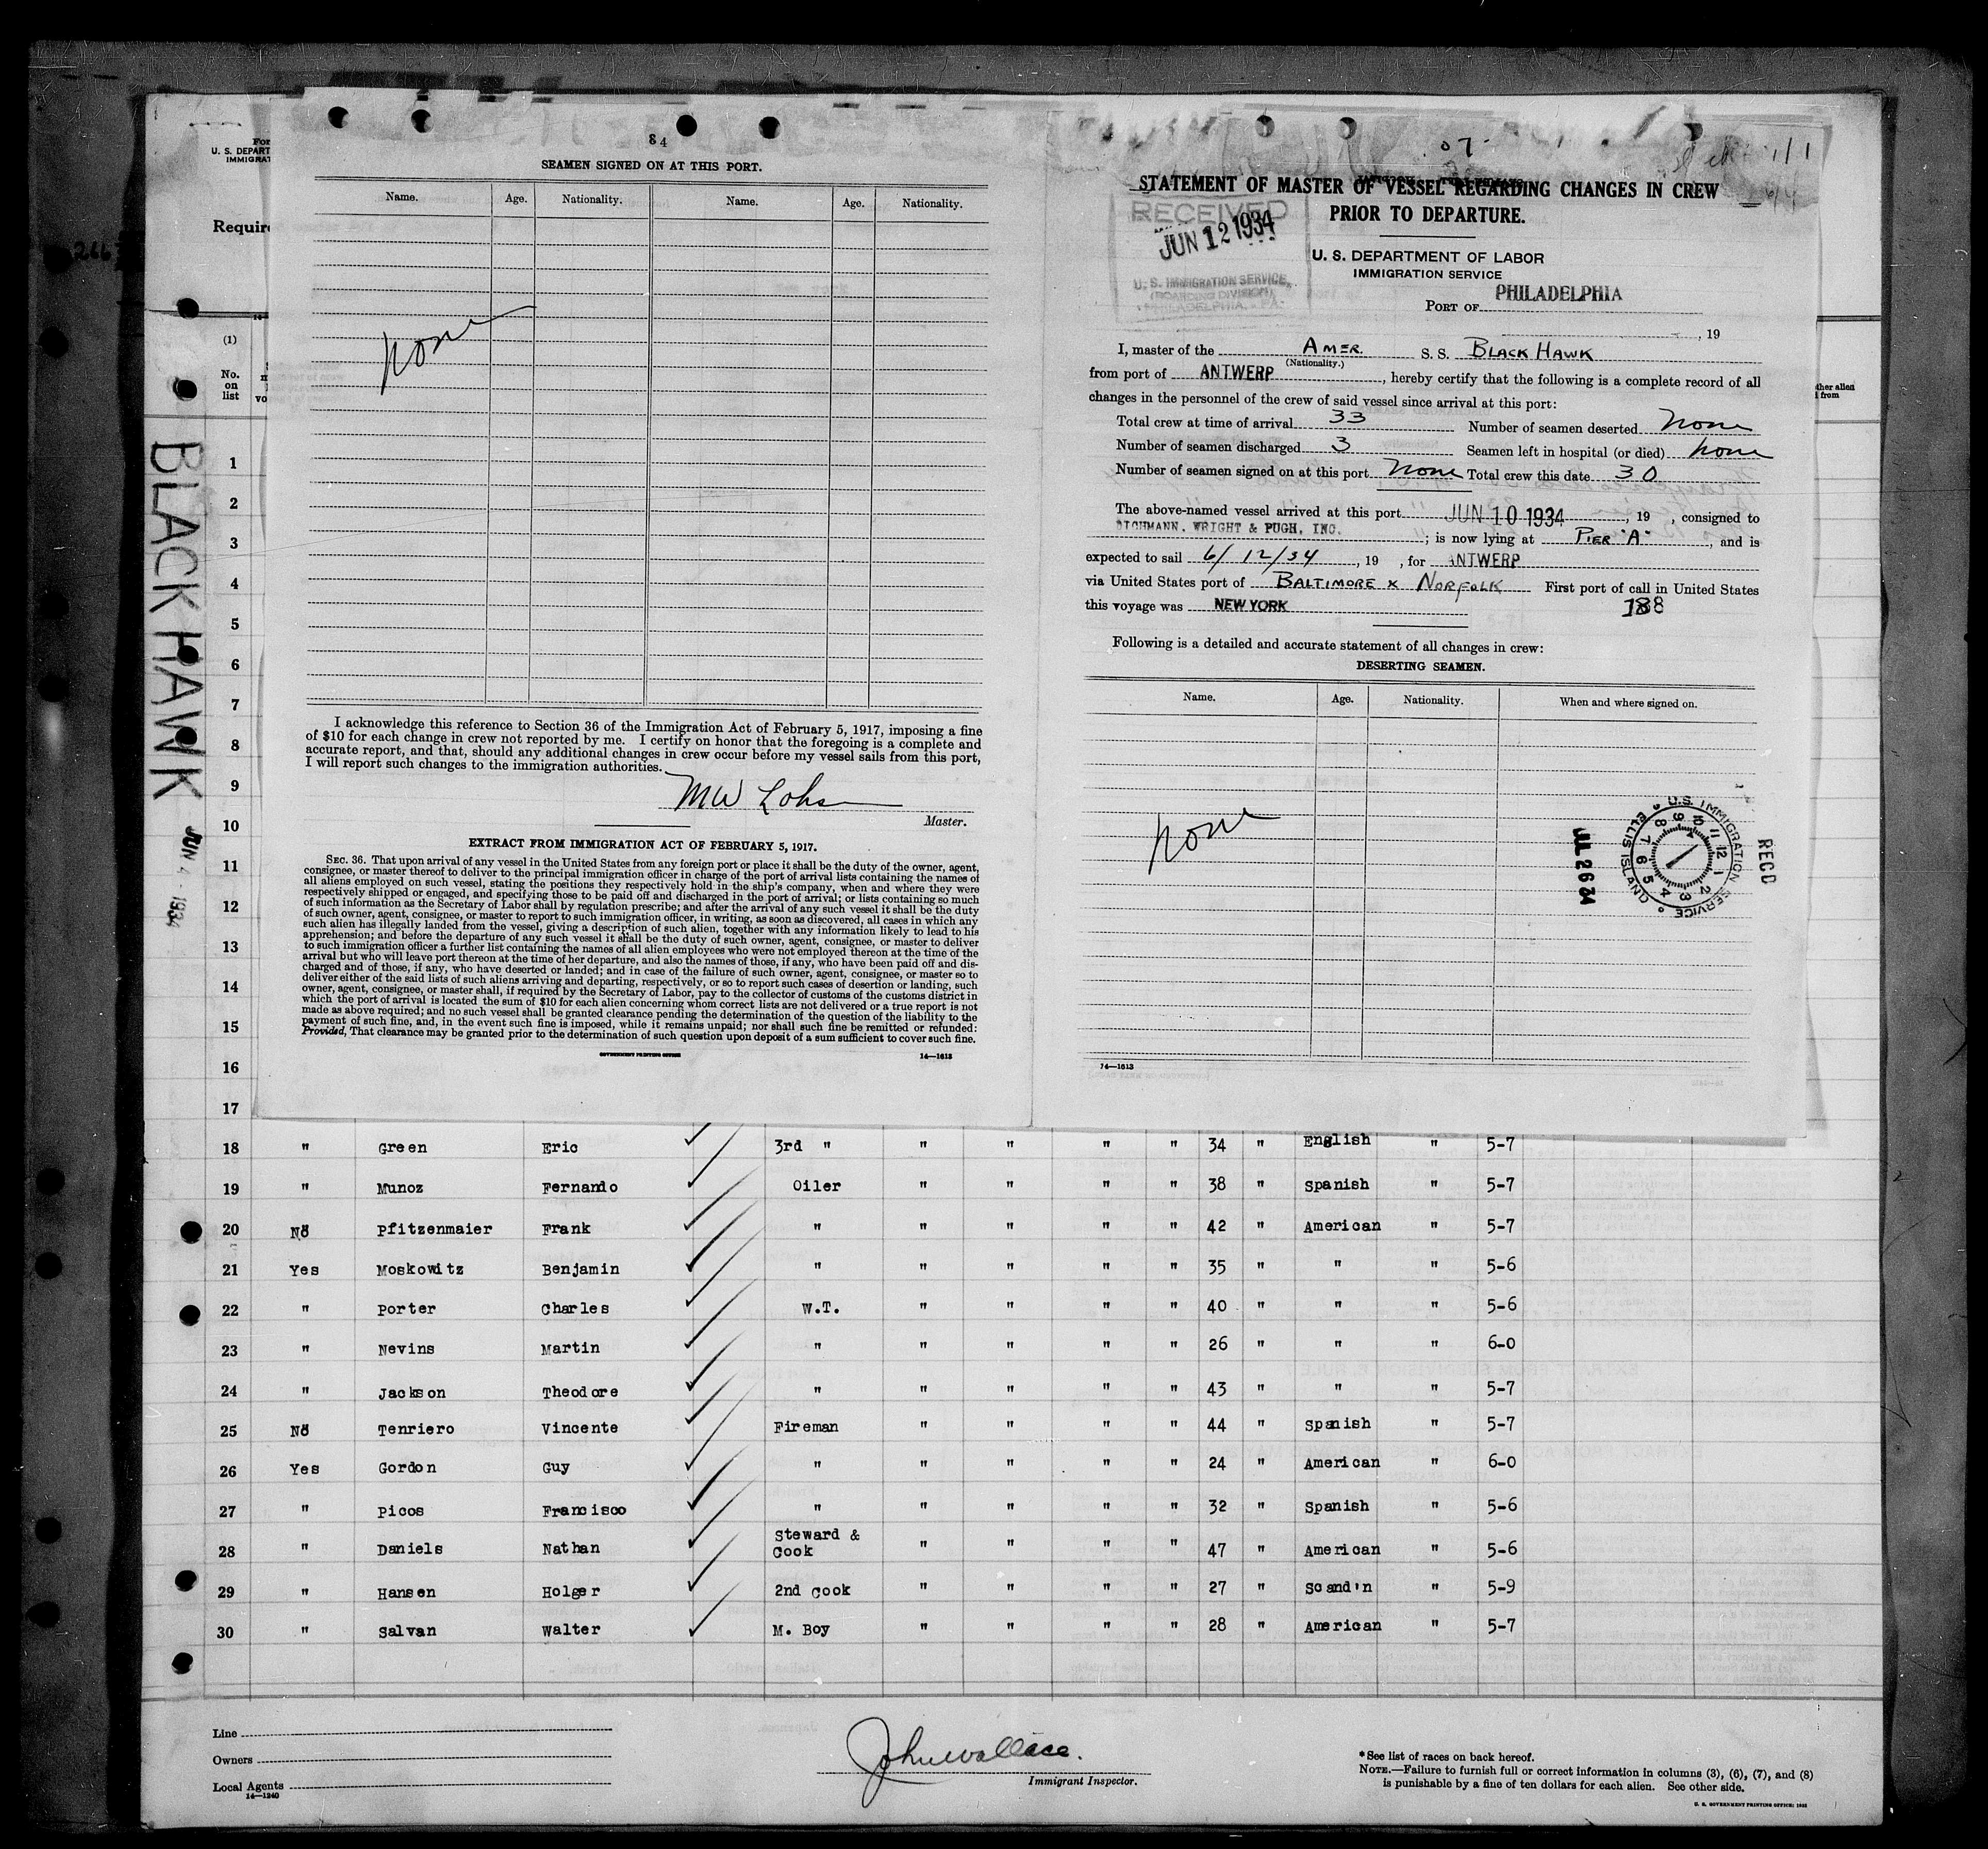 84
SEAMEN SIGNED ON AT THIS PORT.
Name. Age. Nationality. Name. Age. Nationality.
none
I acknowledge this reference to Section 36 of the Immigration Act of February 5, 1917, imposing a fine
of $10 for each change in crew not reported by me. I certify on honor that the foregoing is a complete and
accurate report, and that, should any additional changes in crew occur before my vessel sails from this port,
I will report such changes to the immigration authorities.
MW Lohs
Master.
EXTRACT FROM IMMIGRATION ACT OF FEBRUARY 5, 1917.
SEC. 36. That upon arrival of any vessel in the United States from any foreign port or place it shall be the duty of the owner, agent,
consignee, or master thereof to deliver to the principal immigration officer in charge of the port of arrival lists containing the names of
all aliens employed on such vessel, stating the positions they respectively hold in the ship's company, when and where they were
respectively shipped or engaged, and specifying those to be paid off and discharged in the port of arrival; or lists containing so much
of such information as the Secretary of Labor shall by regulation prescribe; and after the arrival of any such vessel it shall be the duty
of such owner, agent, consignee, or master to report to such immigration officer, in writing, as soon as discovered, all cases in which any
such alien has illegally landed from the vessel, giving a description of such alien, together with any information likely to lead to his
apprehension; and before the departure of any such vessel it shall be the duty of such owner, agent, consignee, or master to deliver
to such immigration officer a further list containing the names of all alien employees who were not employed thereon at the time of the
arrival but who will leave port thereon at the time of her departure, and also the names of those, if any, who have been paid off and dis-
charged and of those, if any, who have deserted or landed; and in case of the failure of such owner, agent, consignee, or master so to
deliver either of the said lists of such aliens arriving and departing, respectively, or so to report such cases of desertion or landing, such
owner, agent, consignee, or master shall, if required by the Secretary of Labor, pay to the collector of customs of the customs district in
which the port of arrival is located the sum of $10 for each alien concerning whom correct lists are not delivered or a true report is not
made as above required; and no such vessel shall be granted clearance pending the determination of the question of the liability to the
payment of such fine, and, in the event such fine is imposed, while it remains unpaid; nor shall such fine be remitted or refunded:
Provided, That clearance may be granted prior to the determination of such question upon deposit of a sum sufficient to cover such fine.
GOVERNMENT PRINTING OFFICE 14—1613
07-
STATEMENT OF MASTER OF VESSEL REGARDING CHANGES IN CREW
PRIOR TO DEPARTURE.
RECEIVED
JUN 12 1934
U. S. IMMIGRATION SERVICE,
(BOARDING DIVISION)
PHILADELPHIA, - PA.
U. S. DEPARTMENT OF LABOR
IMMIGRATION SERVICE
PORT OF PHILADELPHIA
, 19
I, master of the AMER. S. S. BLACK HAWK
(Nationality.)
from port of ANTWERP, hereby certify that the following is a complete record of all
changes in the personnel of the crew of said vessel since arrival at this port:
Total crew at time of arrival 33 Number of seamen deserted none
Number of seamen discharged 3 Seamen left in hospital (or died) none
Number of seamen signed on at this port none Total crew this date 30
The above-named vessel arrived at this port JUN 10 1934, 19 , consigned to
DICHMANN, WRIGHT & PUGH, INC. ; is now lying at PIER "A", and is
expected to sail 6/12/34, 19 , for ANTWERP
via United States port of BALTIMORE x NORFOLK First port of call in United States
this voyage was NEW YORK 188
Following is a detailed and accurate statement of all changes in crew:
DESERTING SEAMEN.
Name. Age. Nationality. When and where signed on.
none
JUL 26 34
U.S. IMMIGRATION SERVICE ELLIS ISLAND
12 1 2 3 4 5 6 7 8 9 10 11
REC'D
14—1613
266
For
U. S. DEPART
IMMIGRAT
Require
(1)
No.
on
list
ther alien
from
BLACK HAWK
JUN 4 - 1934
1
2
3
4
5
6
7
8
9
10
11
12
13
14
15
16
17
18 " Green Eric 3rd " " " " " 34 " English " 5-7
19 " Munoz Fernando Oiler " " " " 38 " Spanish " 5-7
20 No Pfitzenmaier Frank " " " " " 42 " American " 5-7
21 Yes Moskowitz Benjamin " " " " " 35 " " " 5-6
22 " Porter Charles W.T. " " " " 40 " " " 5-6
23 " Nevins Martin " " " " " 26 " " " 6-0
24 " Jackson Theodore " " " " " 43 " " " 5-7
25 No Tenriero Vincente Fireman " " " " 44 " Spanish " 5-7
26 Yes Gordon Guy " " " " " 24 " American " 6-0
27 " Picos Francisco " " " " " 32 " Spanish " 5-6
28 " Daniels Nathan Steward & Cook " " " " 47 " American " 5-6
29 " Hansen Holger 2nd Cook " " " " 27 " Scand'n " 5-9
30 " Salvan Walter M. Boy " " " " 28 " American " 5-7
Line
Owners
Local Agents
14—1240
John Wallace.
Immigrant Inspector.
*See list of races on back hereof.
NOTE.—Failure to furnish full or correct information in columns (3), (6), (7), and (8)
is punishable by a fine of ten dollars for each alien. See other side.
U. S. GOVERNMENT PRINTING OFFICE: 1932